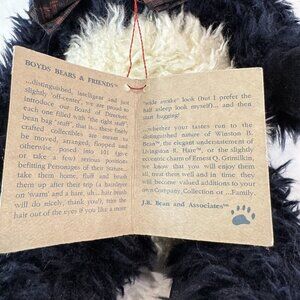 BOYDS BEARS & FRIENDS™
...distinguished, intelligent and just
slightly 'off-center', we are proud to
introduce our Board of Directors,
each one filled with "the right stuff",
bean bag "stuff", that is... these finely
crafted collectibles are meant to
be moved, arranged, flopped and
otherwise posed... 101 (give
or take a few) serious positions
befitting Personages of their Stature...
take them home, fluff and brush
them up after their trip (a hairdryer
on 'warm' and a hare, uh... hair brush
will do nicely, thank you!), trim the
hair out of the eyes if you like a more
"wide awake" look (but I prefer the
half asleep look myself)... and then
start hugging!
...whether your tastes run to the
distinguished nature of Winston B.
Bean™, the elegant understatement of
Livingston R. Hare™, or the slightly
eccentric charm of Ernest Q. Grimilkin
...I know that you will enjoy them
all, treat them well and in time they
will become valued additions to your
own Company, Collection or ...Family.
J.B. Bean and Associates™